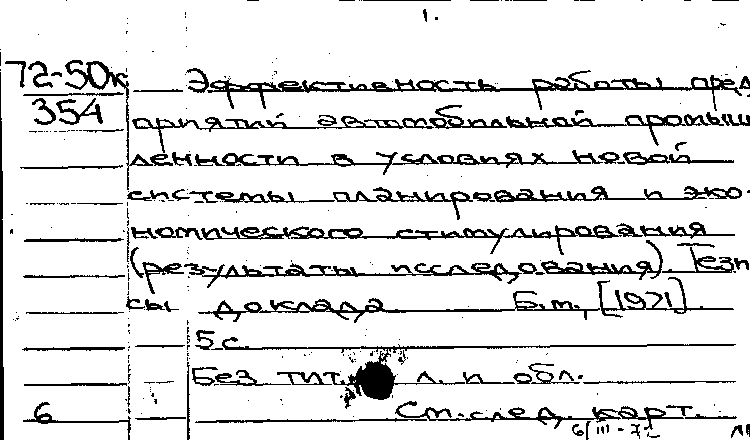 1.
72-50к Эффективность работы пред
354 приятий автомобильной промыш
ленности в условиях новой
системы планирования и эко-
номического стимулирования
(результаты исследования). Тези
сы доклада Б.м., [1971].
5 с.
Без тит. л. и обл.
6 См. след. карт.
6/III-72